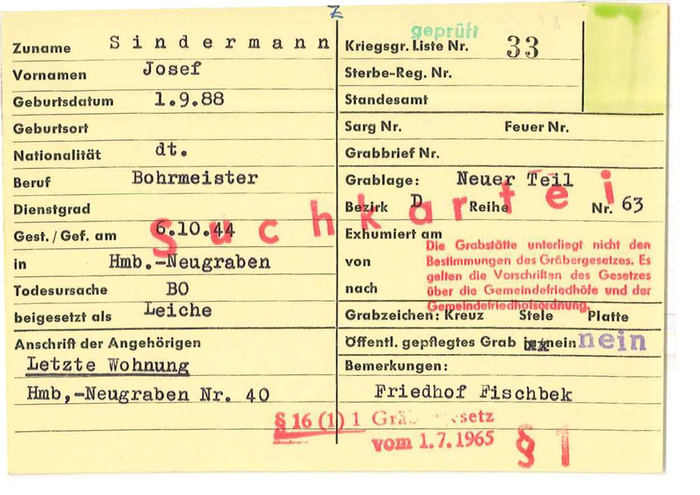 Z
Zuname Sindermann
Vornamen Josef
Geburtsdatum 1.9.88
Geburtsort
Nationalität dt.
Beruf Bohrmeister
Dienstgrad
Gest. / Gef. am 6.10.44
in Hmb.-Neugraben
Todesursache BO
beigesetzt als Leiche
Anschrift der Angehörigen
Letzte Wohnung
Hmb,-Neugraben Nr. 40
geprüft
Kriegsgr. Liste Nr. 33
Sterbe-Reg. Nr.
Standesamt
Sarg Nr. Feuer Nr.
Grabbrief Nr.
Grablage: Neuer Teil
Bezirk D Reihe Nr. 63
Suchkartei
Exhumiert am
von
nach
Die Grabstätte unterliegt nicht den
Bestimmungen des Gräbergesetzes. Es
gelten die Vorschriften des Gesetzes
über die Gemeindefriedhöfe und der
Gemeindefriedhofsordnung.
Grabzeichen: Kreuz Stele Platte
Öffentl. gepflegtes Grab nein nein
Bemerkungen:
Friedhof Fischbek
§ 16 (1) 1 Gräbergesetz
vom 1.7.1965
§ 1